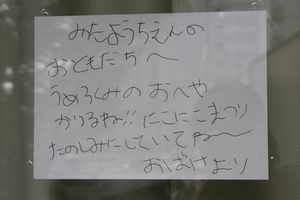 みたようちえんの
おともだちへ
うめぐみのおへや
かりるね!! にこにこまつり
たのしみにしていてね〜
おばけより